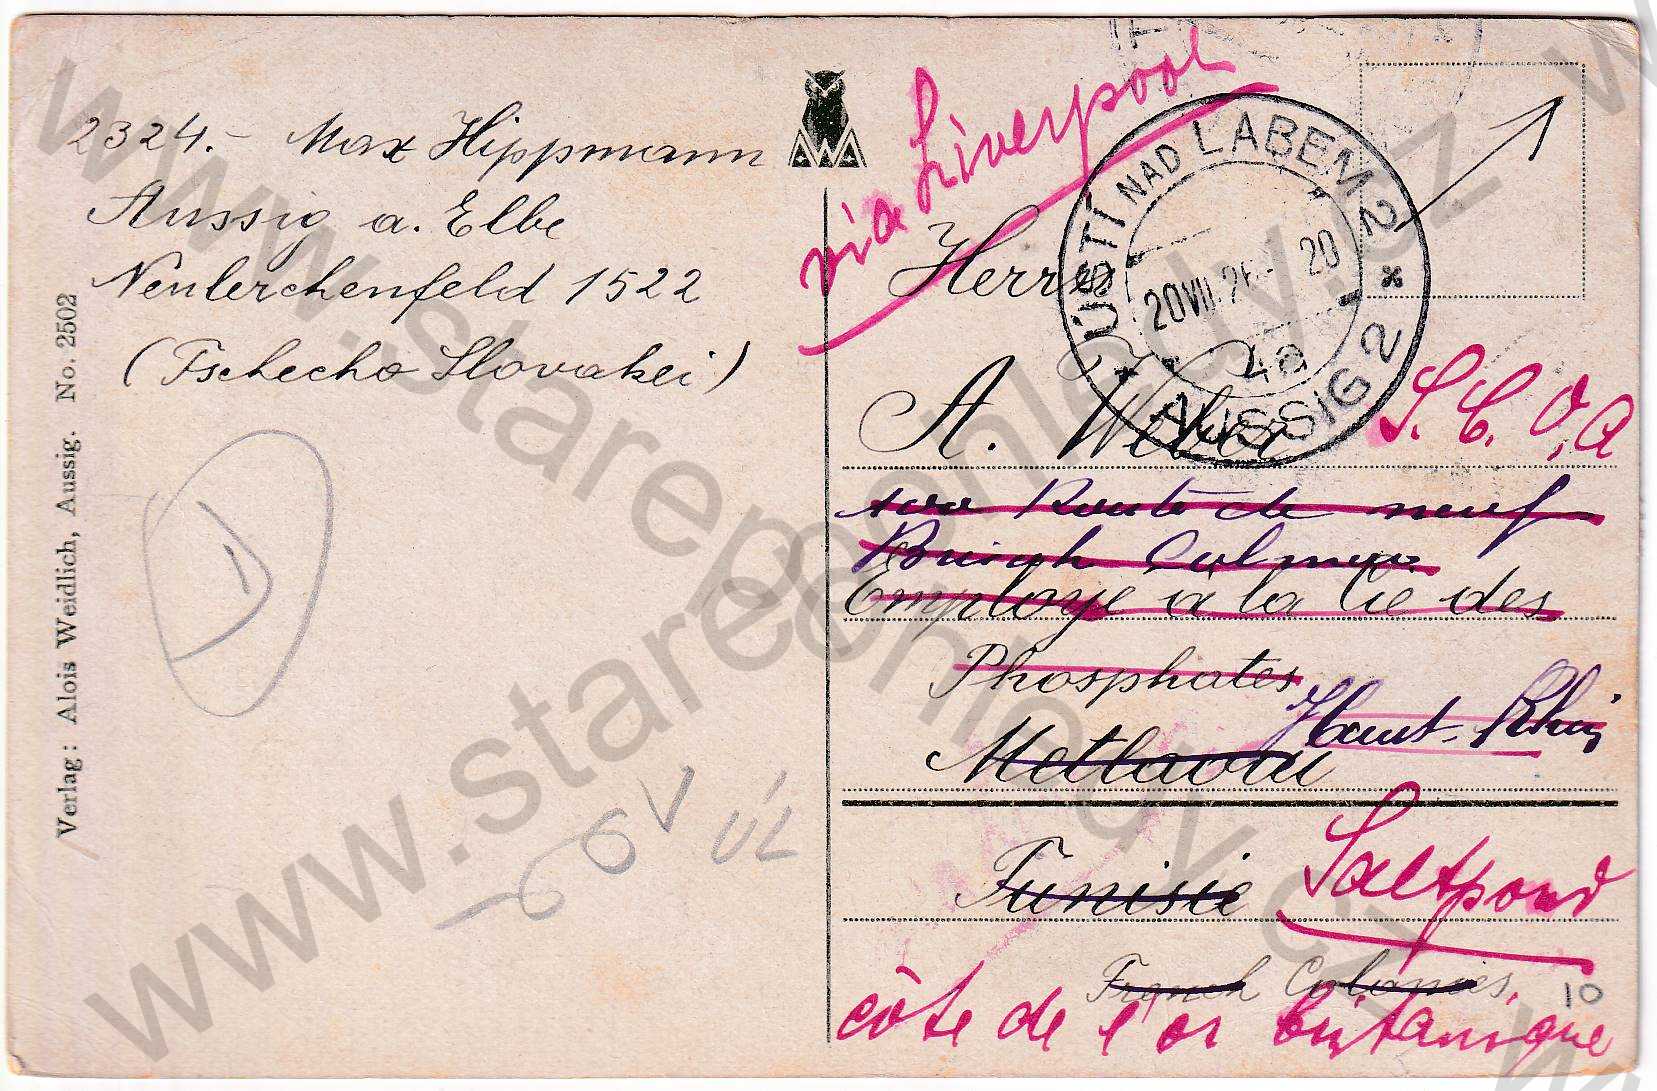 2324.- Max Hippmann
Aussig a. Elbe
Neulerchenfeld 1522
(Tschecho Slovakei)
Verlag: Alois Weidlich, Aussig. No. 2502
AWA
via Liverpool
ÚSTÍ NAD LABEM 2
20 VII. 26 - 20
4a
AUSSIG 2
Herrn
A. Weber
S. C. O. A
Route de neuf
Brisach Colmar
Employé à la Cie des
Phosphates
Haut-Rhin
Metlaoui
Tunisie
Saltpond
French Colonies
côte de l'or britanique
10
V ÚL
www.starepohledy.cz
www.starepohledy.cz